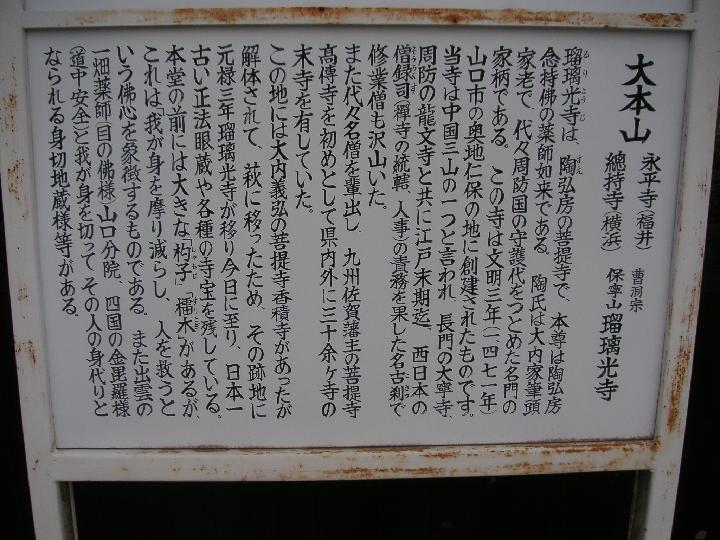 大本山 永平寺(福井)
總持寺(横浜)
曹洞宗
保寧山 瑠璃光寺
瑠璃光寺は、陶弘房の菩提寺で、本尊は陶弘房
念持佛の薬師如来である。 陶氏は大内家筆頭
家老で、代々周防国の守護代をつとめた名門の
家柄である。 この寺は文明三年(一四七一年)
山口市の奥地仁保の地に創建されたものです。
当寺は中国三山の一つと言われ、長門の大寧寺、
周防の龍文寺と共に江戸末期迄、西日本の
僧録司(禅寺の統轄、人事)の責務を果した名古刹で
修業僧も沢山いた。
また代々名僧を輩出し、九州佐賀藩主の菩提寺
高傳寺を初めとして県内外に三十余ヶ寺の
末寺を有していた。
この地には大内義弘の菩提寺香積寺があったが
解体されて、萩に移ったため、その跡地に
元禄三年瑠璃光寺が移り今日に至り、日本一
古い正法眼蔵や各種の寺宝を残している。
本堂の前には大きな「杓子」「擂木」があるが、
これは「我が身を摩り減らし、人を救うと
いう佛心を象徴するものである。また出雲の
一畑薬師(目の佛様)山口分院、四国の金毘羅様
(道中安全)と我が身を切って その人の身代りと
なられる身切地蔵様等がある。